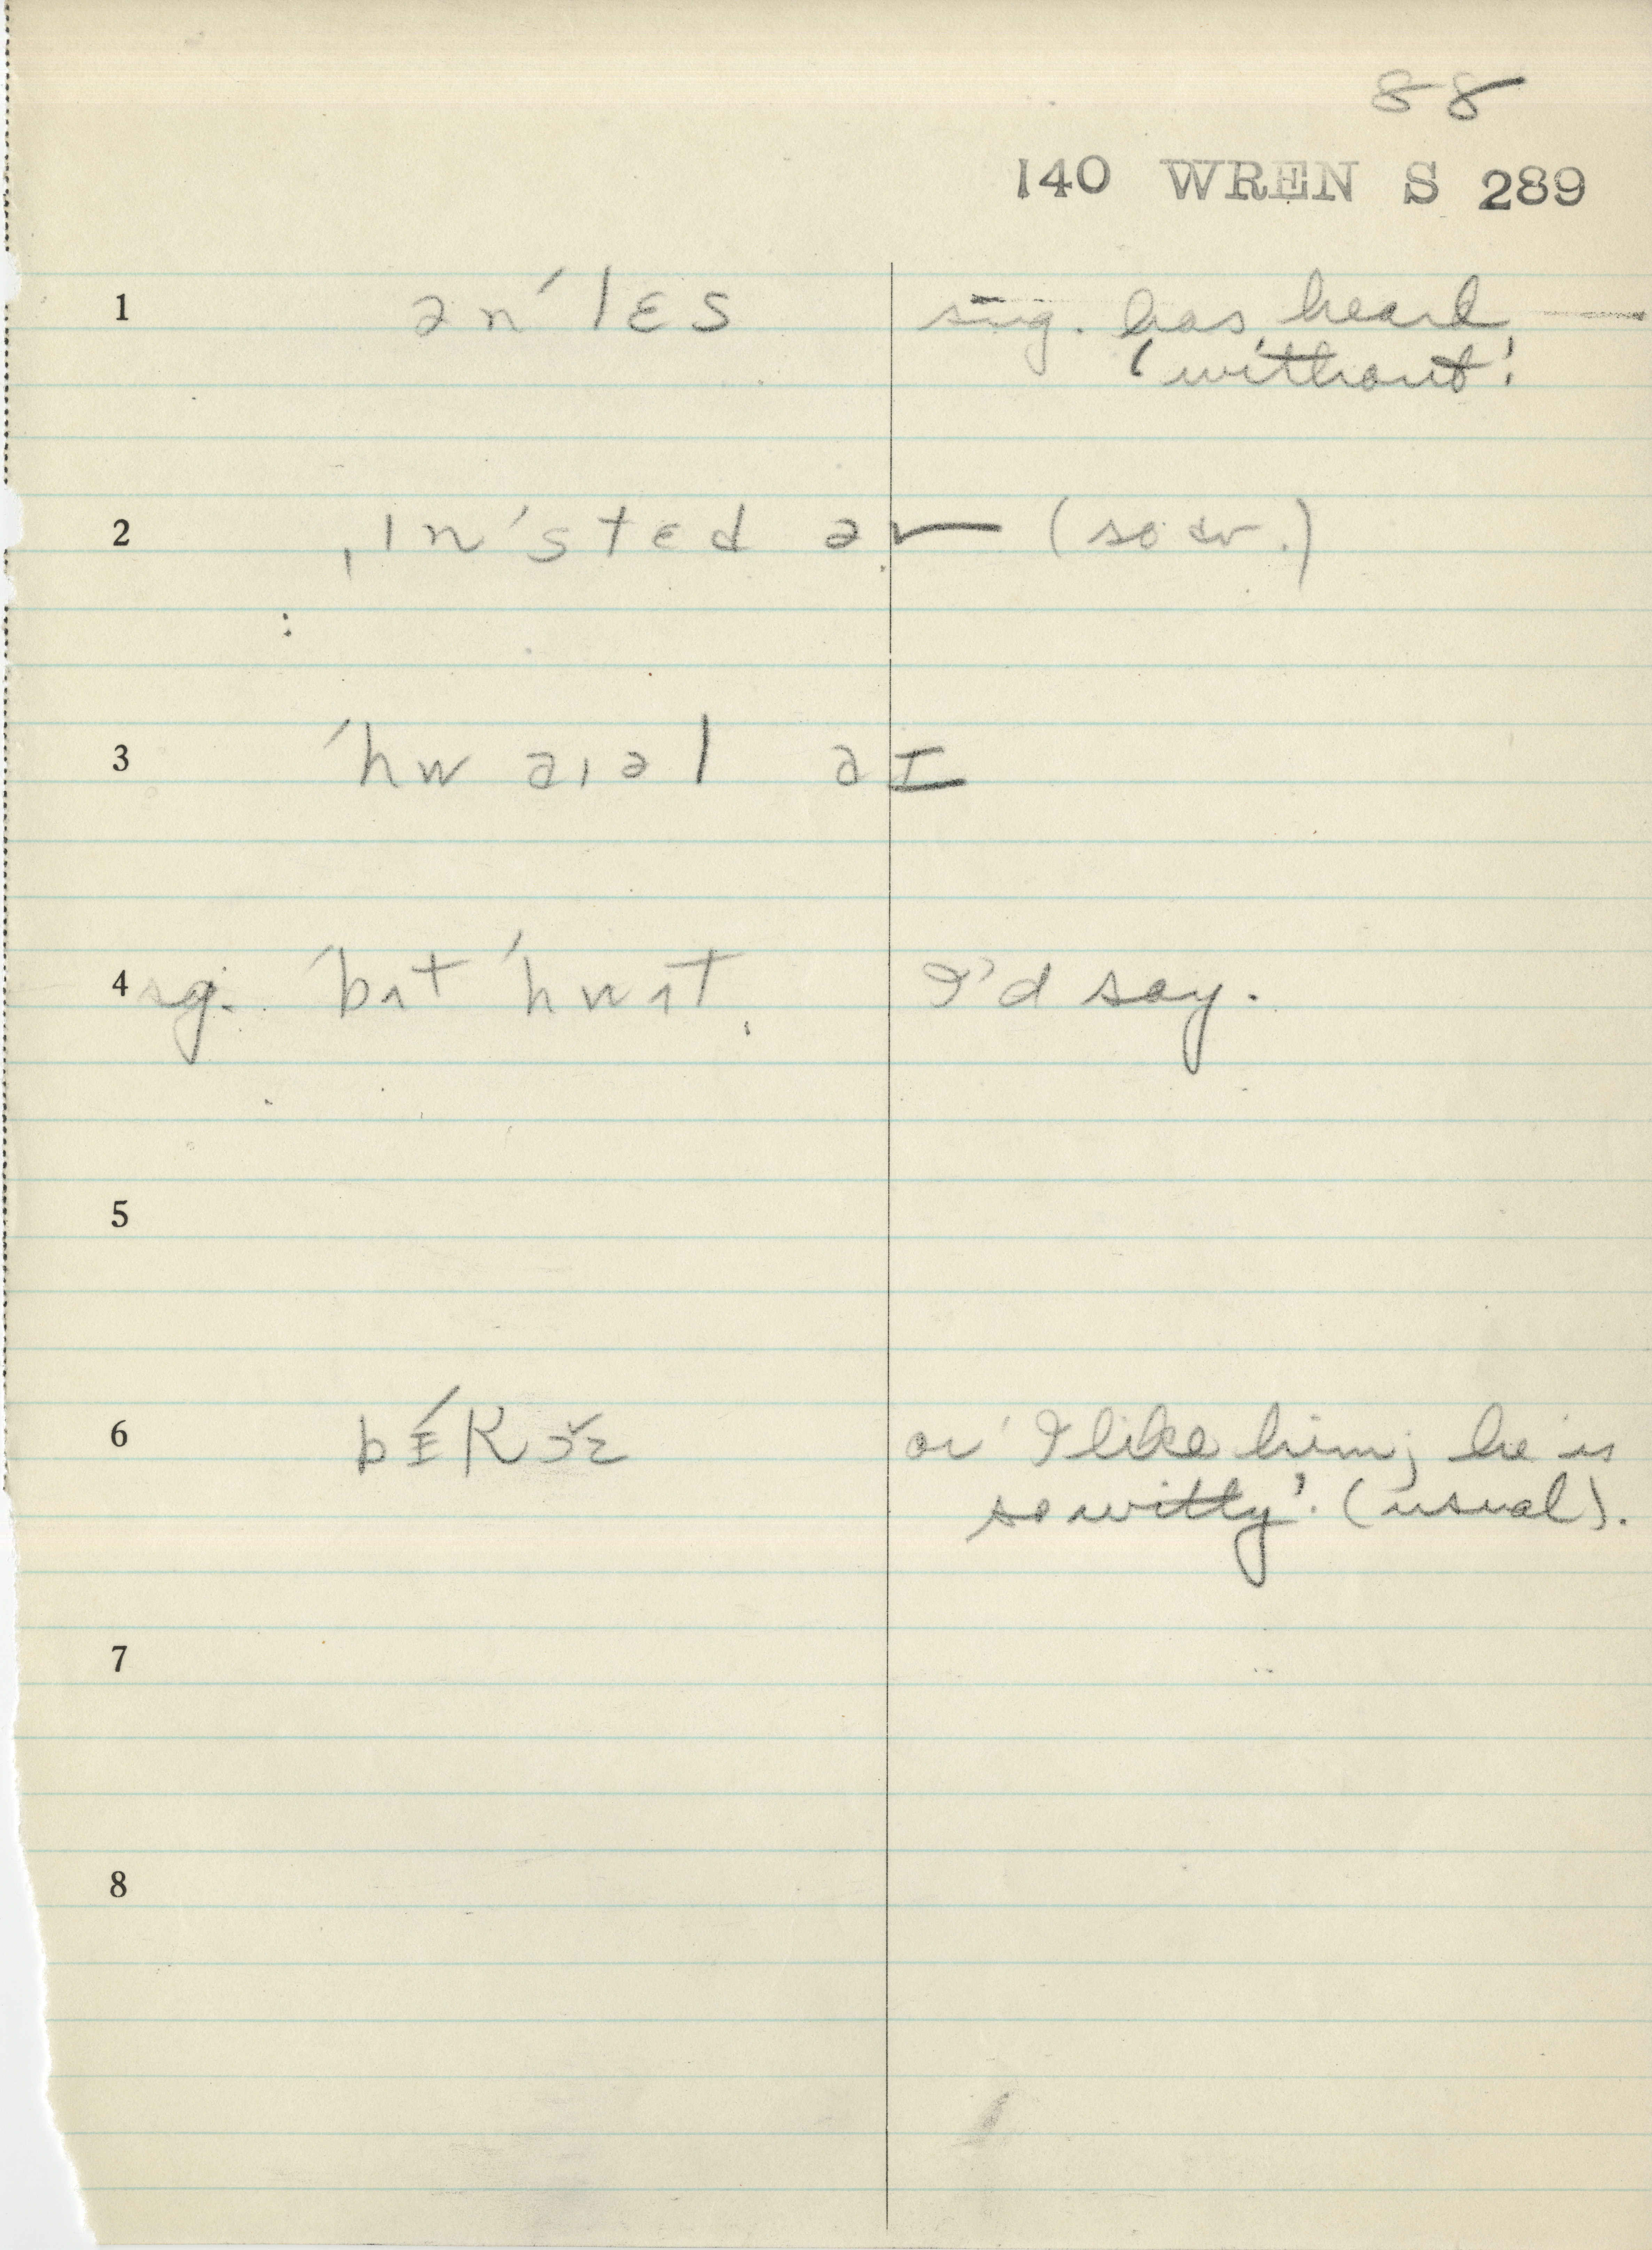 88
140 WREN S 289
1 ən ˈlɛs sug. has heard —
'without'.
2 ˌɪnˈstɛd ə✓— (so aux.)
3 ˈhw aɪəl aɪ
4 sg. ˈbʌt ˈhwʌt. I'd say.
5
6 bɪ́Kɔ̌z or 'I like him; he is
so witty'. (usual).
7
8